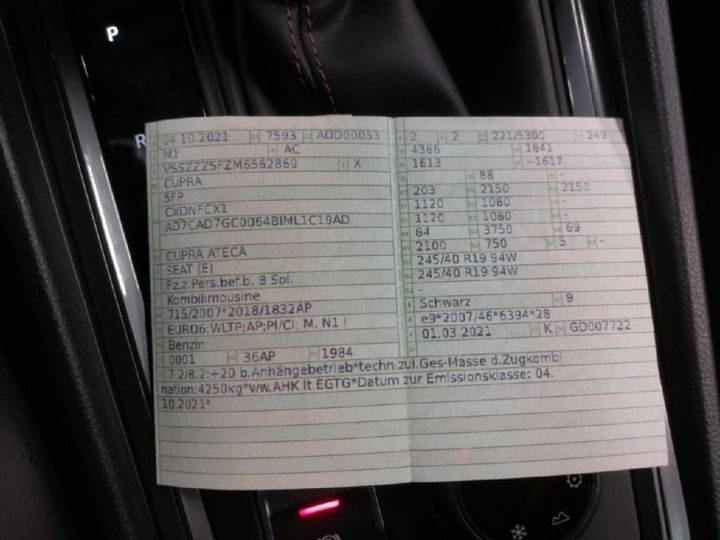 P
R
04.10.2021 7593 AOD00053
M1 AC
VSSZZZ5FZM6562869 X
CUPRA
5FP
CXDNFCX1
AD7CAD7GC0064BIML1C19AD
CUPRA ATECA
SEAT (E)
Fz.z.Pers.bef.b. 8 Spl.
Kombilimousine
715/2007*2018/1832AP
EURO6;WLTP;AP;PI/CI; M, N1 I
Benzin
0001 36AP 1984
2 2 221/5300 249
4386 1841
1613 -1617
88 -
203 2150 2150
1120 1080 -
1120 1080 -
84 3750 69
2100 750 5 -
245/40 R19 94W
245/40 R19 94W
-
Schwarz 9
e9*2007/46*6394*28
01.03.2021 K GD007722
7.2/8.2:+20 b.Anhängebetrieb*techn.zul.Ges-Masse d.Zugkombi
nation:4250kg*ww.AHK lt.EGTG*Datum zur Emissionsklasse: 04.
10.2021*